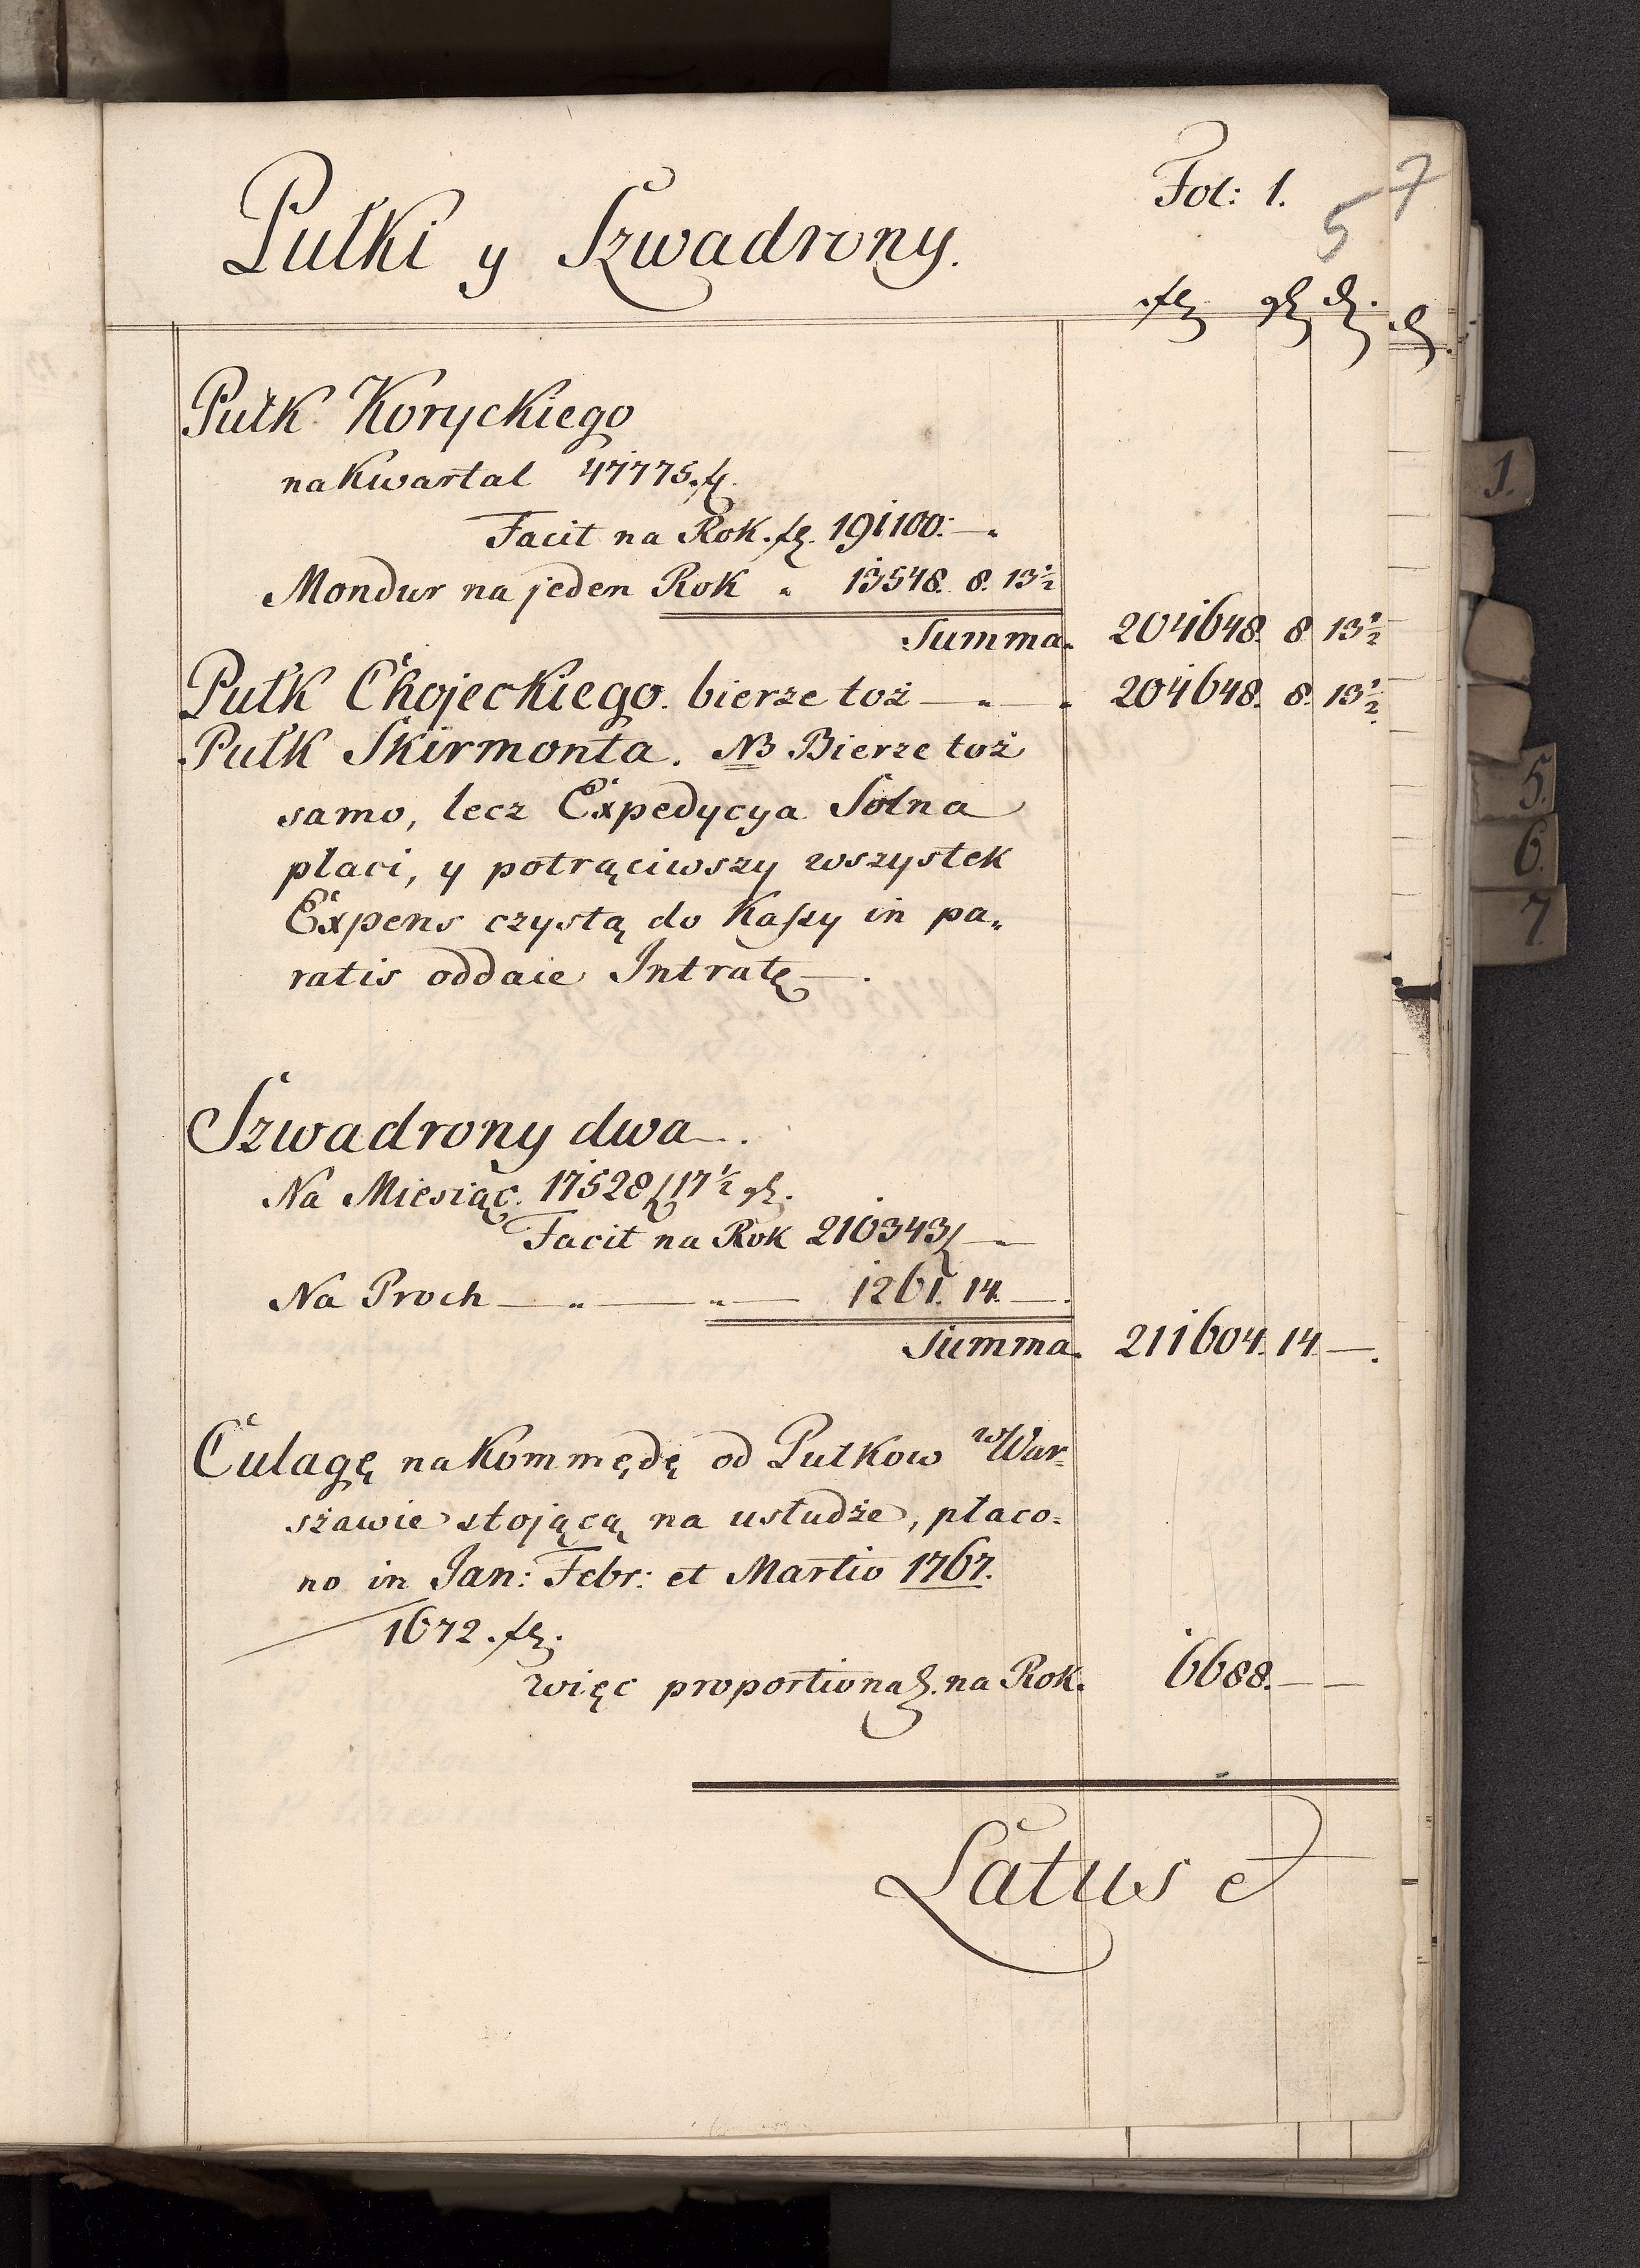 Fol: 1.
5 7
Pułki y Szwadrony.
fl. gl. d.
Pułk Koryckiego
na Kwartał 47775. fl.
Facit na Rok. fl. 191100. — „
Mondur na jeden Rok „ 13548. 8. 13½
Summa. 204648. 8 13½
Pułk Chojeckiego. bierze toż — „ — „ 204648. 8. 13½
Pułk Skirmonta. NB Bierze toż
samo, lecz Expedycya Solna
płaci, y potrąciwszy wszystek
Expens czystą do Kaſsy in pa„
ratis oddaie Intratę —.
Szwadrony dwa —.
Na Miesiąc. 17528 fl 17½ gl.
Facit na Rok 210343 fl — „
Na Proch — „ — „ — 1261. 14. —.
Summa. 211604. 14 —.
Culagę na Kommędę od Pułkow w War=
szawie stojącą na usłudze, płaco=
no in Jan: Febr: et Martio 1767.
1672. fl.
więc proportional. na Rok. 6688. — —
Latus et
1.
5.
6.
7.